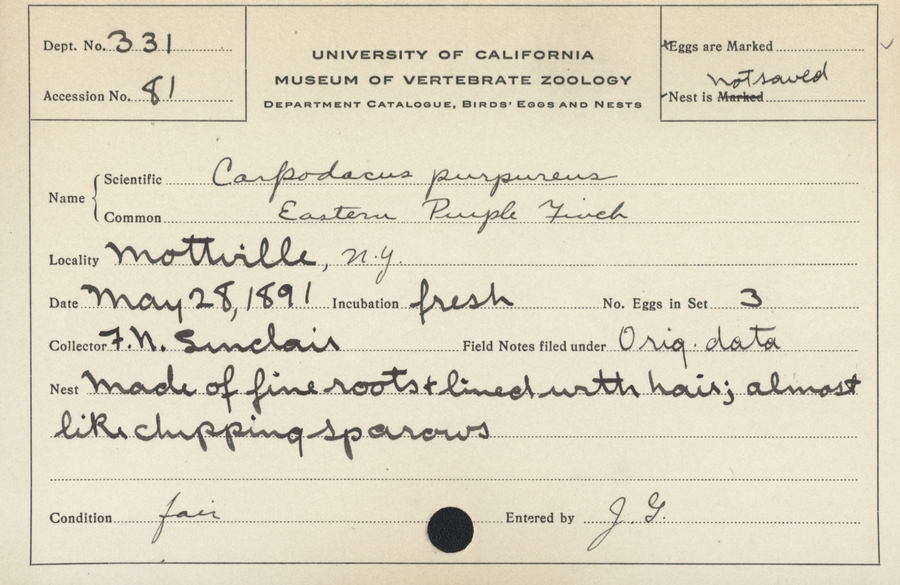 Dept. No. 331
Accession No. 81
UNIVERSITY OF CALIFORNIA
MUSEUM OF VERTEBRATE ZOOLOGY
DEPARTMENT CATALOGUE, BIRDS' EGGS AND NESTS
Eggs are Marked
not saved
Nest is Marked
Name
Scientific Carpodacus purpureus
Common Eastern Purple Finch
Locality Mottville, N.Y.
Date May 28, 1891 Incubation fresh No. Eggs in Set 3
Collector F. N. Sinclair Field Notes filed under Orig. data
Nest Made of fine roots & lined with hair; almost
like chipping sparows
Condition fair Entered by J. G.